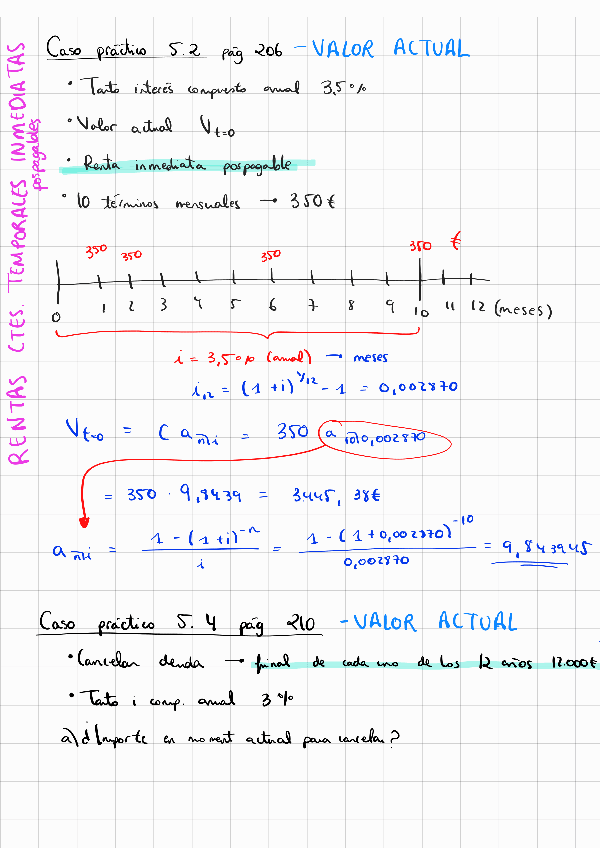 RENTAS CTES. TEMPORALES INMEDIATAS
pospagables
Caso práctico 5.2 pág 206 - VALOR ACTUAL
• Tanto interés compuesto anual 3,5%
• Valor actual Vt=0
• Renta inmediata pospagable
• 10 términos mensuales → 350€
350 350 350 350 €
0 1 2 3 4 5 6 7 8 9 10 11 12 (meses)
i = 3,5% (anual) → meses
i12 = (1+i)^1/12 - 1 = 0,002870
Vt=0 = C a n¬i = 350 a 10¬0,002870
= 350 · 9,8439 = 3445,38€
a n¬i = (1-(1+i)^-n)/i = (1-(1+0,002870)^-10)/0,002870 = 9,843945
Caso práctico 5.4 pág 210 - VALOR ACTUAL
• Cancelar deuda → final de cada uno de los 12 años 12.000€
• Tanto i comp. anual 3%
a) ¿Importe en moment actual para cancelar?